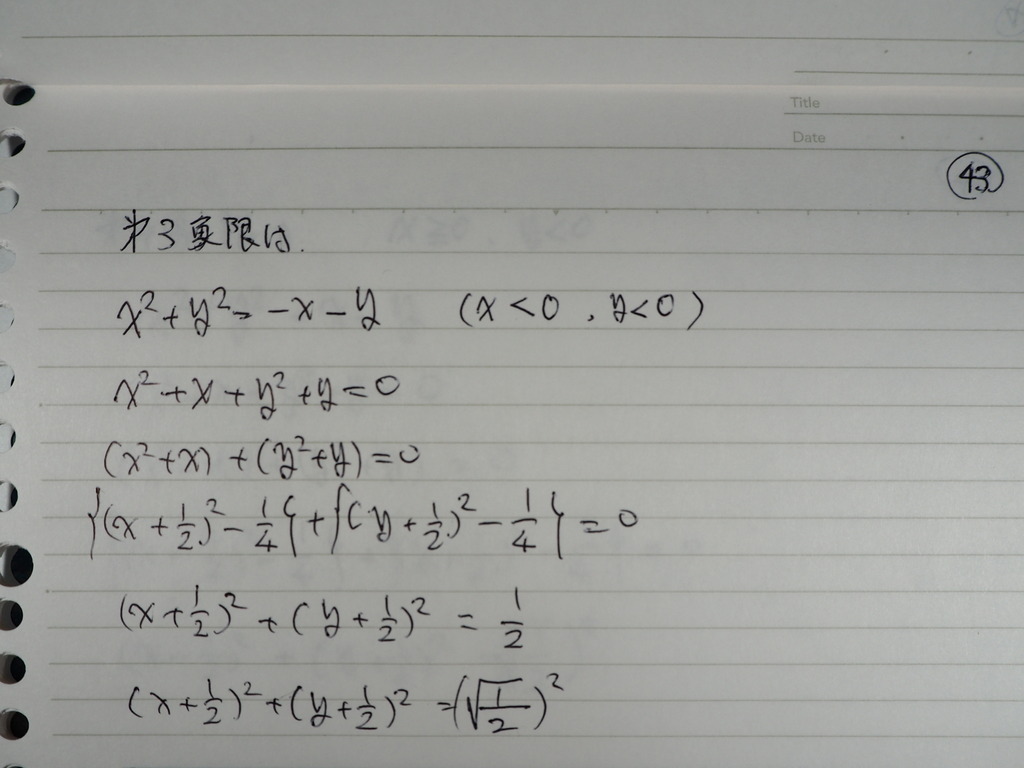 Title
Date
㊸
第3象限は.
x²+y²=-x-y (x<0, y<0)
x²+x+y²+y=0
(x²+x)+(y²+y)=0
{(x+1/2)²-1/4}+{(y+1/2)²-1/4}=0
(x+1/2)²+(y+1/2)²=1/2
(x+1/2)²+(y+1/2)²=(√1/2)²